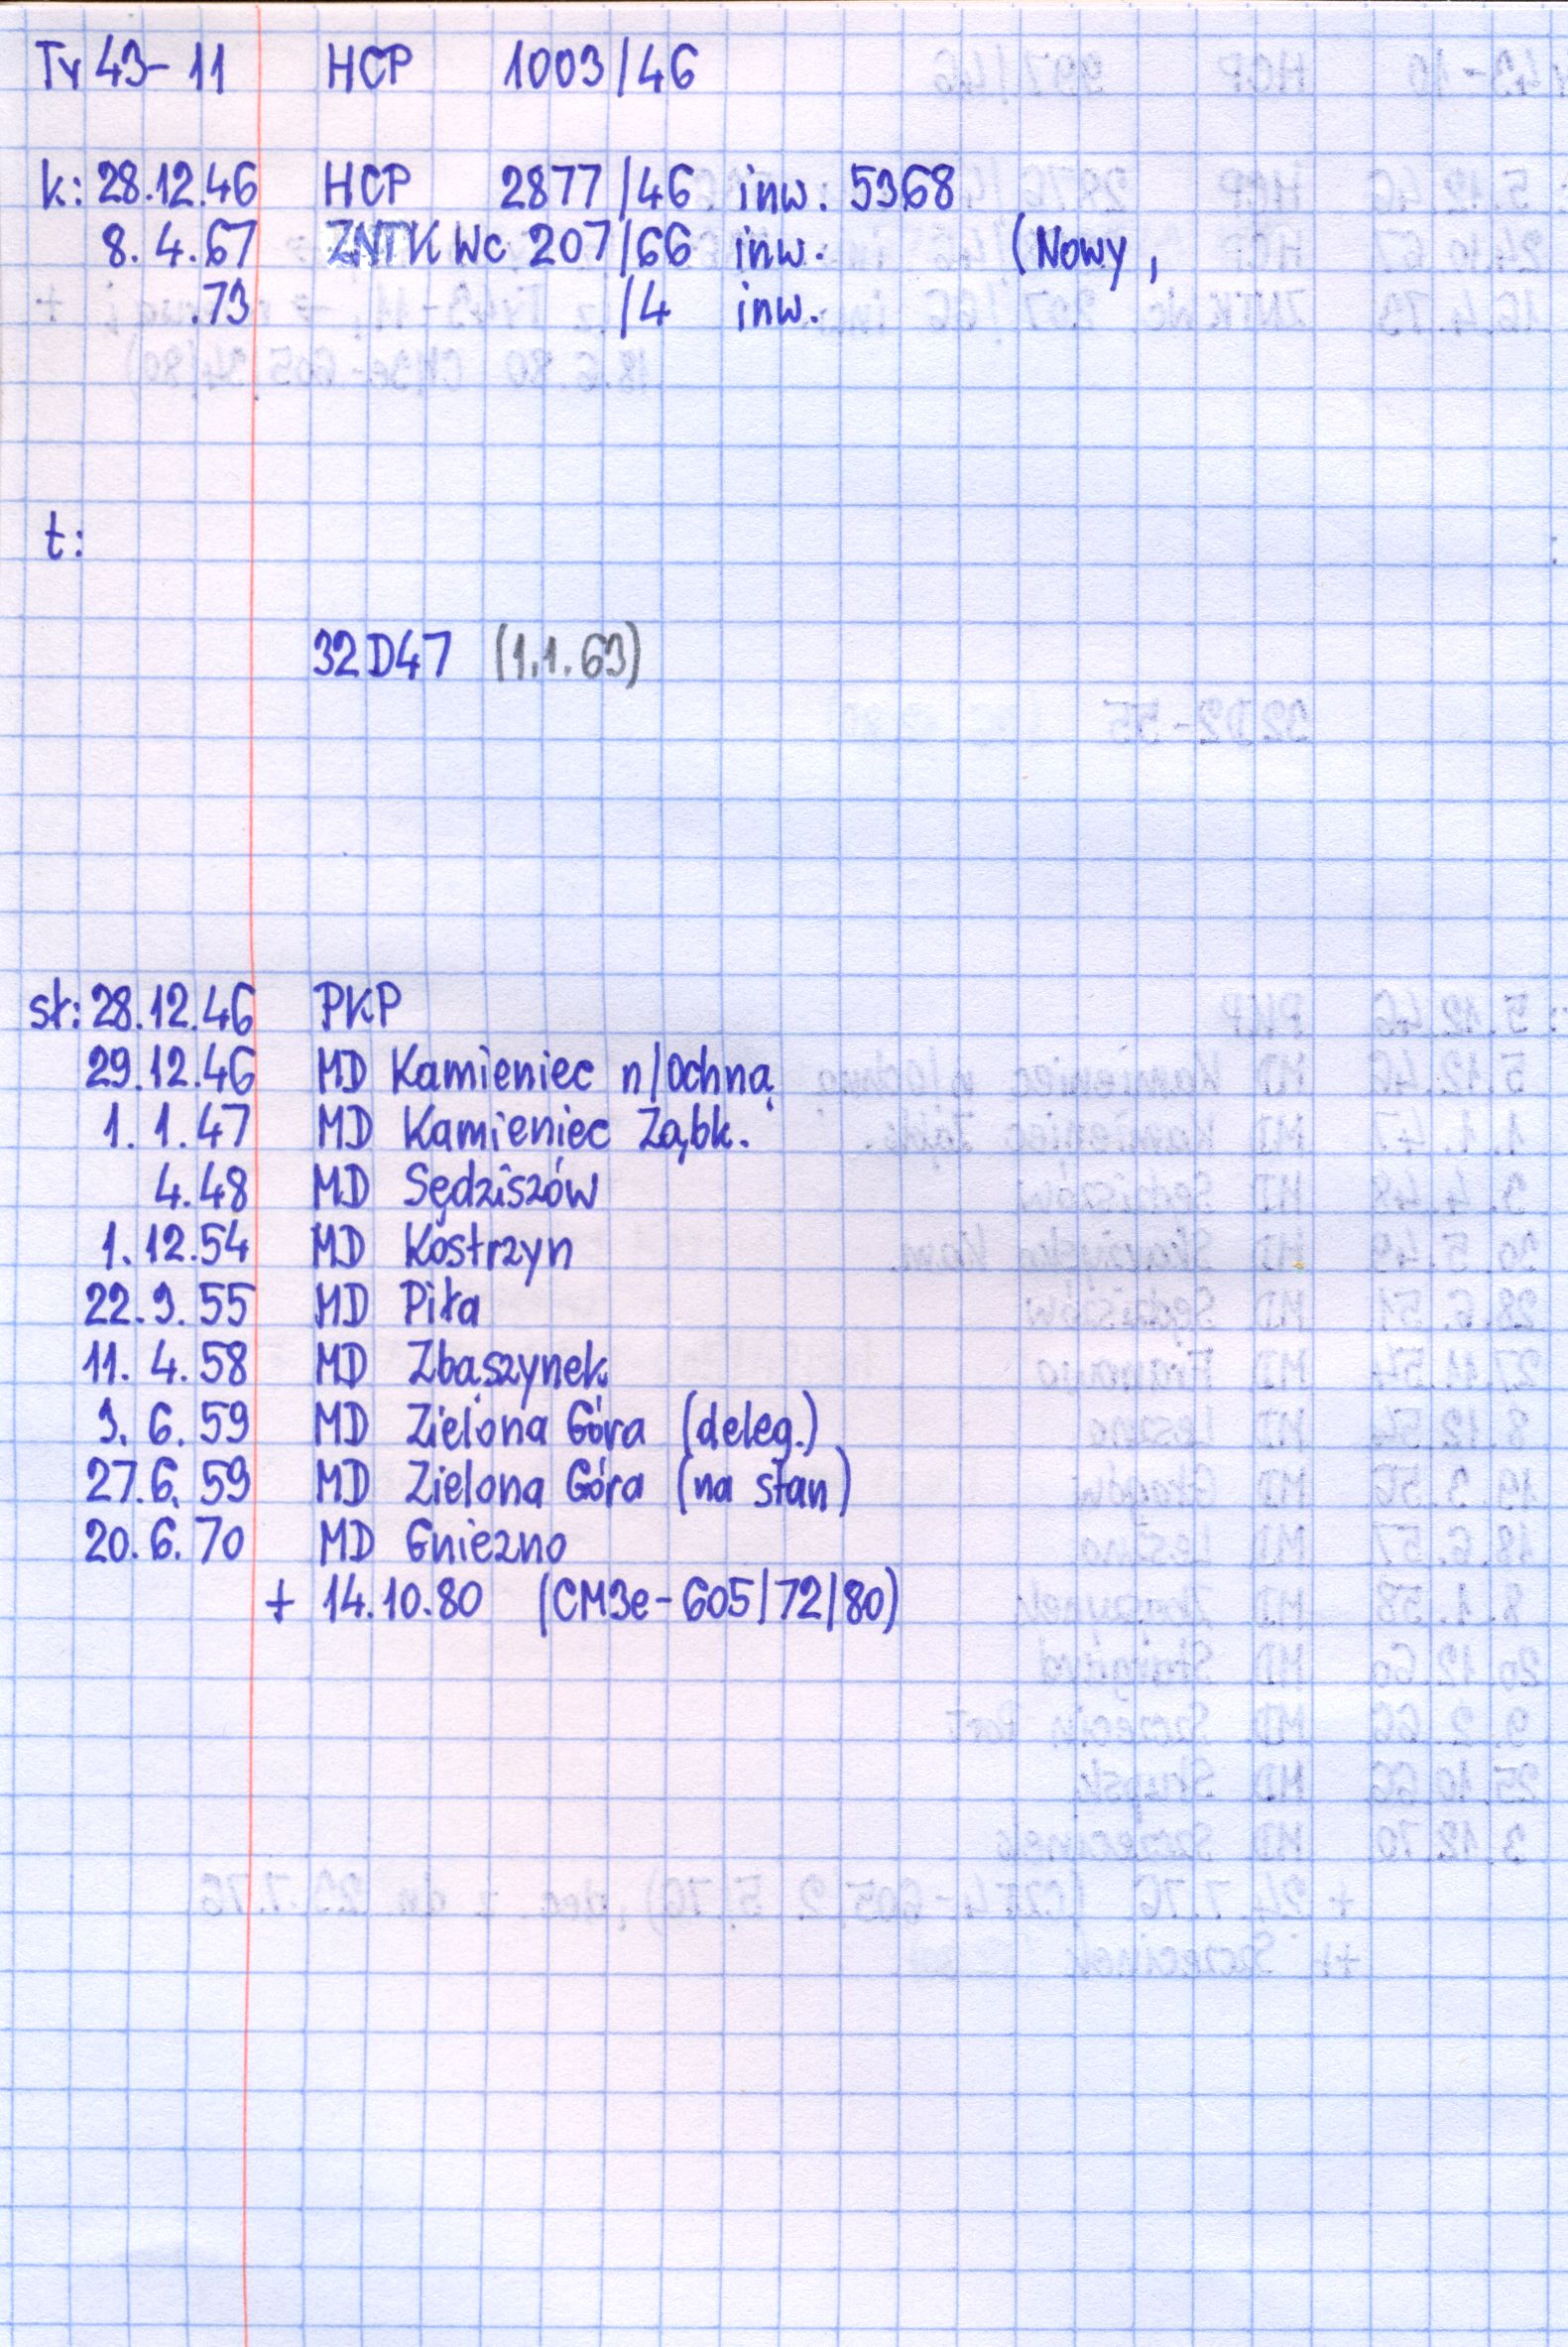 Ty43-11 HCP 1003/46
k: 28.12.46 HCP 2877/46 inw. 5368
8.4.67 ZNTK Wc 207/66 inw. (Nowy,
.73 /4 inw.
t:
32D47 (1.1.63)
st: 28.12.46 PKP
29.12.46 MD Kamieniec n/Ochną
1.1.47 MD Kamieniec Ząbk.
4.48 MD Sędziszów
1.12.54 MD Kostrzyn
22.3.55 MD Piła
11.4.58 MD Zbąszynek
3.6.59 MD Zielona Góra (deleg.)
27.6.59 MD Zielona Góra (na stan)
20.6.70 MD Gniezno
+ 14.10.80 (CM3e-605/72/80)